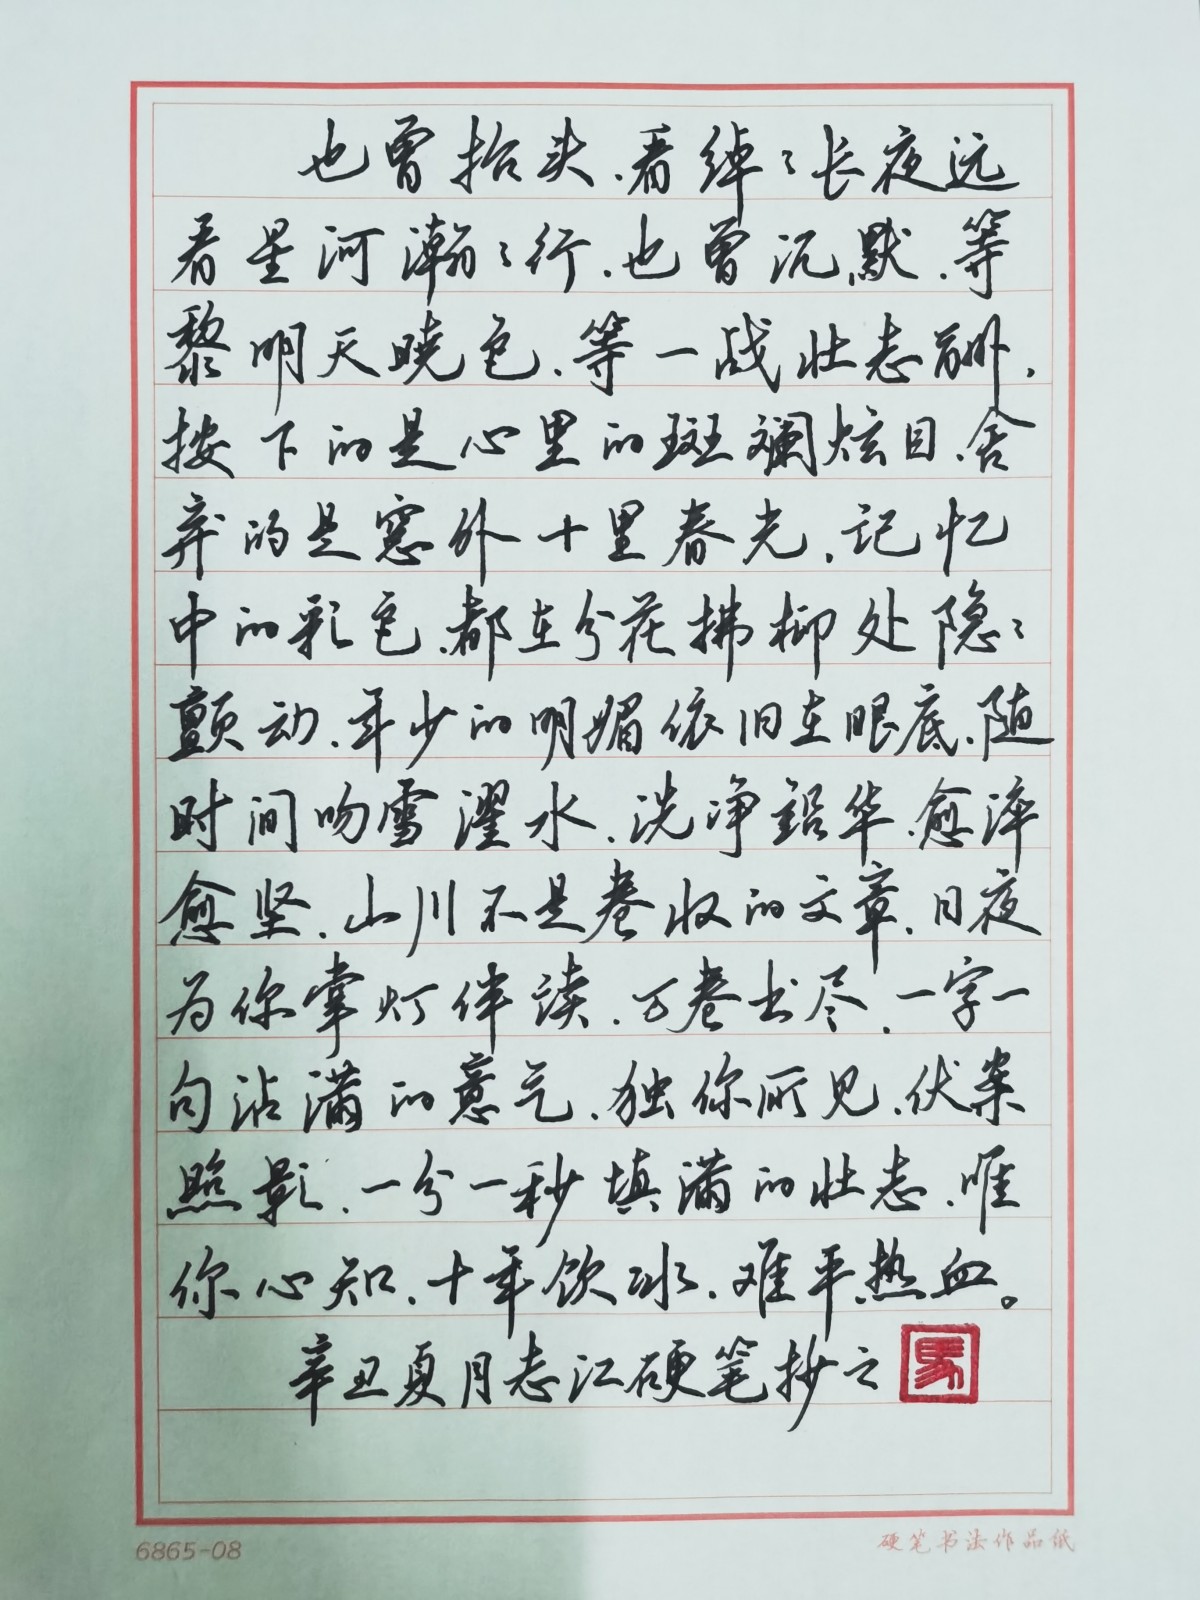 也曾抬头、看绰々长夜远
看星河瀚々行、也曾沉默、等
黎明天晓色、等一战壮志酬、
按下的是心里的斑斓炫目、舍
弃的是窗外十里春光、记忆
中的彩色、都在分花拂柳处隐々
颤动、年少的明媚依旧在眼底、随
时间吻雪濯水、洗净铅华、愈淬
愈坚、山川不是卷收的文章、日夜
为你掌灯伴读、万卷书尽、一字一
句沾满的意气、独你所见、伏案
照影、一分一秒填满的壮志、唯
你心知、十年饮冰、难平热血。
辛丑夏月志江硬笔抄之
马
6865-08
硬笔书法作品纸